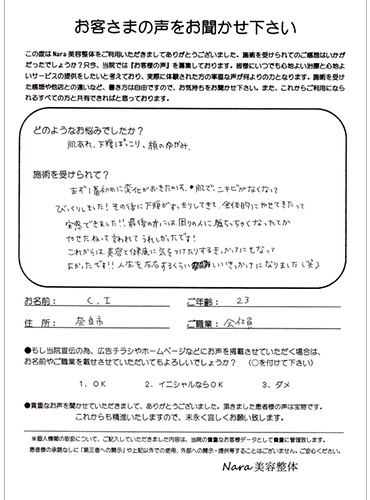 お客さまの声をお聞かせ下さい
この度はNara美容整体をご利用いただきましてありがとうございました。施術を受けられてのご感想はいかが
だったでしょうか？只今、当院では『お客様の声』を募集しております。皆様にいつでも心地よい治療と心地よ
いサービスの提供をしたいと考えており、実際に体験された方の率直な声が何よりの力となります。施術を受け
た感想や他店との違いなど、書き方は自由ですので、お気持ちをお聞かせ下さい。また、これからご利用になら
れるすべての方と共有できればと思っております。
どのようなお悩みでしたか？
肌あれ、下腹ぽっこり、顔のゆがみ
施術を受けられて？
まず1番初めに変化がおきたのは、肌で、ニキビがなくなって
びっくりしました！その後に下腹がすっきりしてきて、全体的にやせてきたって
実感できました！！最後の方には周りの人に顔ちっちゃくなったてか
やせたねって言われてうれしかったです！
これからは美容と健康に気をつけたりするきっかけにもなって
よかったです！！人生を左右するくらいいいきっかけになりました（笑）
お名前： C.I ご年齢： 23
住 所： 奈良市 ご職業： 会社員
●もし当院宣伝の為、広告チラシやホームページなどにお声を掲載させていただく場合は、
お名前やご職業を載せさせていただいてもよろしいでしょうか？ （○を付けて下さい）
1．ＯＫ 2．イニシャルならＯＫ 3．ダメ
●貴重なお声を聞かせていただきまして、ありがとうございました。頂きました患者様の声は宝物です。
これからも精進いたしますので、末永く宜しくお願い致します。
※個人情報の取扱について、ご記入していただきました内容は、当院の貴重なお客様データとして貴重に管理致します。
患者様の承諾なしに「第三者への開示」や上記以外での使用、外部への開示・提供等することはございません。ご安心ください。
Nara 美容整体